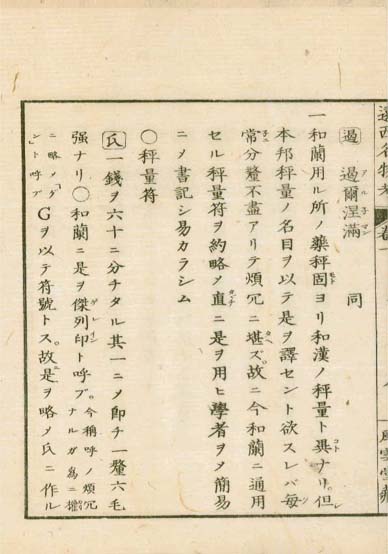 遠西名物
過 過爾涅満 同
一和蘭用ル所ノ薬秤固ヨリ和漢ノ秤量ト異ナリ。但
本邦秤量ノ名目ヲ以テ是ヲ譯セント欲スレバ毎
常分釐不盡アリテ煩冗ニ堪ズ。故ニ今和蘭ニ通用
セル秤量符ヲ約略〆直ニ是ヲ用ヒ學者ヲ〆簡易
ニ〆書記シ易カラシム
〇秤量符
氏 一錢ヲ六十ニ分チタル其一ニ〆即チ一釐六毛
强ナリ〇和蘭ニ是ヲ傑列印ト呼ブ。今稱呼ノ煩冗ナルガ為ニ權
ニ略〆「ゲン」ト呼ブ Gヲ以テ符號トス。故ニ是ヲ略〆氏ニ作ル